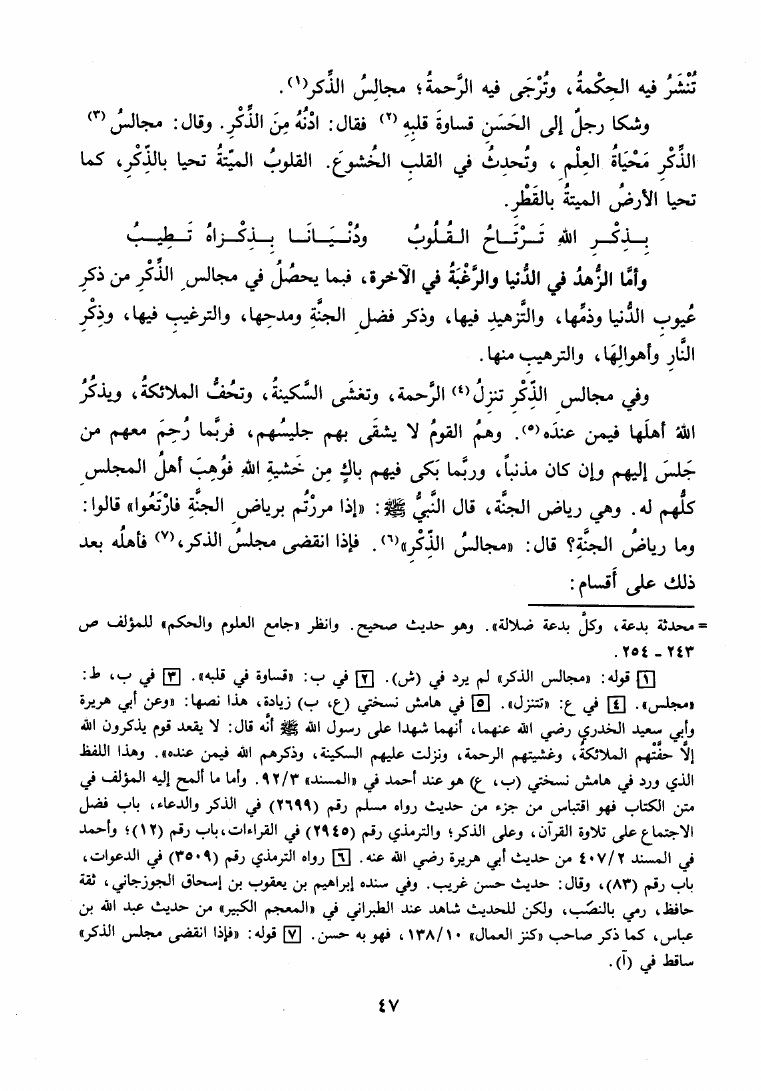 تُنْشَرُ فيه الحِكْمةُ، وتُرْجَى فيه الرَّحمةُ؛ مجالِسُ الذِّكر(١).
وشكا رجلٌ إلى الحَسَنِ قساوةَ قلبِهِ (٢) فقال: ادْنُهُ مِنَ الذِّكْرِ. وقال: مجالسُ (٣)
الذِّكْرِ مَحْيَاةُ العِلْمِ، وتُحدِثُ في القلبِ الخُشوعَ. القلوبُ الميّتةُ تحيا بالذِّكْرِ، كما
تحيا الأرضُ الميتةُ بالقَطْرِ.
بِـذِكْـرِ اللهِ تَـرْتَـاحُ القُـلُوبُ ودُنْـيَـانَـا بِـذِكْـرَاهُ تَـطِيـبُ
وأمَّا الزُّهدُ في الدُّنيا والرَّغْبَةُ في الآخرة، فبما يحصُلُ في مجالسِ الذِّكْرِ من ذكرِ
عُيوبِ الدُّنيا وذمِّها، والتَّزهيدِ فيها، وذكر فضلِ الجنَّةِ ومدحِها، والترغيبِ فيها، وذِكْرِ
النَّارِ وأهوالِهَا، والترهيبِ منها.
وفي مجالسِ الذِّكْرِ تنزِلُ (٤) الرَّحمة، وتغشَى السَّكينةُ، وتحُفُّ الملائكةُ، ويذكُرُ
اللهُ أهلَها فيمن عندَه(٥). وهمُ القومُ لا يشقَى بهم جليسُهم، فربَّما رُحِمَ معهم من
جَلسَ إليهم وإن كان مذنباً، وربَّما بَكى فيهم باكٍ مِن خَشيةِ اللهِ فوُهِبَ أهلُ المجلسِ
كلُّهم له. وهي رياض الجنَّة، قال النَّبيُّ ﷺ: «إذا مررْتُم برياضِ الجنَّةِ فارْتَعُوا» قالوا:
وما رياضُ الجنَّةِ؟ قال: «مجالسُ الذِّكْرِ»(٦). فإذا انقضى مجلسُ الذكر،(٧) فأهلُه بعد
ذلك على أقسام:
= محدثة بدعة، وكلّ بدعة ضلالة». وهو حديث صحيح. وانظر «جامع العلوم والحكم» للمؤلف ص
٢٤٣ - ٢٥٤.
[١] قوله: «مجالس الذكر» لم يرد في (ش). [٢] في ب: «قساوة في قلبه». [٣] في ب، ط:
«مجلس». [٤] في ع: «تتنزل». [٥] في هامش نسختي (ع، ب) زيادة، هذا نصها: «وعن أبي هريرة
وأبي سعيد الخدري رضي الله عنهما، أنهما شهدا على رسول الله ﷺ أنَّه قال: لا يقعد قوم يذكرون الله
إلَّا حفَّتْهم الملائكةُ، وغشيتهم الرحمة، ونزلت عليهم السكينة، وذكرهم الله فيمن عنده». وهذا اللفظ
الذي ورد في هامش نسختي (ب، ع) هو عند أحمد في «المسند» ٩٢/٣. وأما ما ألمح إليه المؤلف في
متن الكتاب فهو اقتباس من جزء من حديث رواه مسلم رقم (٢٦٩٩) في الذكر والدعاء، باب فضل
الاجتماع على تلاوة القرآن، وعلى الذكر؛ والترمذي رقم (٢٩٤٥) في القراءات،باب رقم (١٢)؛ وأحمد
في المسند ٤٠٧/٢ من حديث أبي هريرة رضي الله عنه. [٦] رواه الترمذي رقم (٣٥٠٩) في الدعوات،
باب رقم (٨٣)، وقال: حديث حسن غريب. وفي سنده إبراهيم بن يعقوب بن إسحاق الجوزجاني، ثقة
حافظ، رمي بالنصْب، ولكن للحديث شاهد عند الطبراني في «المعجم الكبير» من حديث عبد الله بن
عباس، كما ذكر صاحب «كنز العمال» ١٣٨/١٠، فهو به حسن. [٧] قوله: «فإذا انقضى مجلس الذكر»
ساقط في (آ).
٤٧